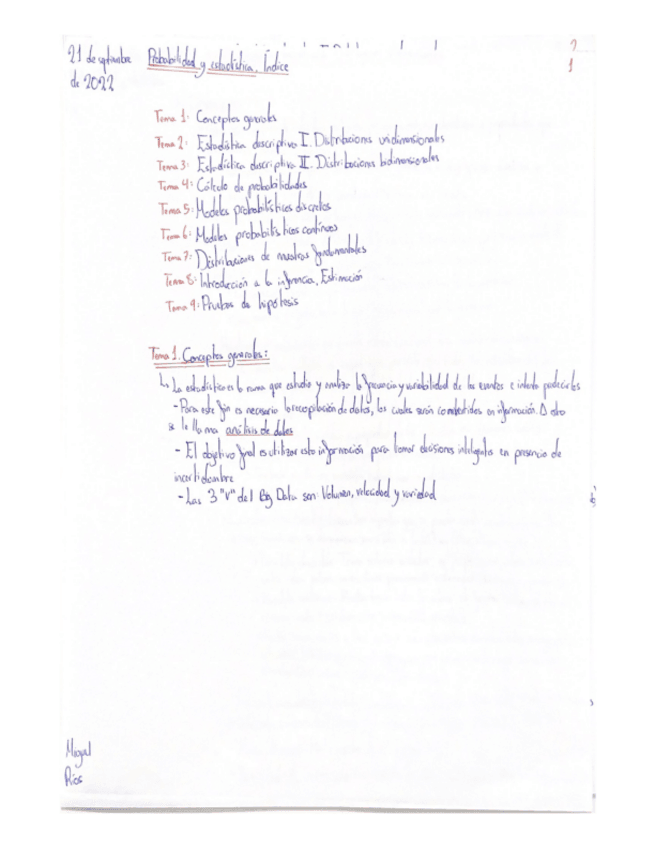 21 de septiembre
de 2022
Probabilidad y estadística. Índice
1
Tema 1: Conceptos generales
Tema 2: Estadística descriptiva I. Distribuciones unidimensionales
Tema 3: Estadística descriptiva II. Distribuciones bidimensionales
Tema 4: Cálculo de probabilidades
Tema 5: Modelos probabilísticos discretos
Tema 6: Modelos probabilísticos continuos
Tema 7: Distribuciones de muestras fundamentales
Tema 8: Introducción a la inferencia, Estimación
Tema 9: Pruebas de hipótesis
Tema 1. Conceptos generales:
↳ La estadística es la rama que estudia y analiza la frecuencia y variabilidad de los eventos e intenta predecirlos
- Para este fin es necesario la recopilación de datos, los cuales serán convertidos en información. A esto
se le llama análisis de datos
- El objetivo final es utilizar esta información para tomar decisiones inteligentes en presencia de
incertidumbre
- Las 3 "V" del Big Data son: Volumen, velocidad y variedad
Miguel
Ríos